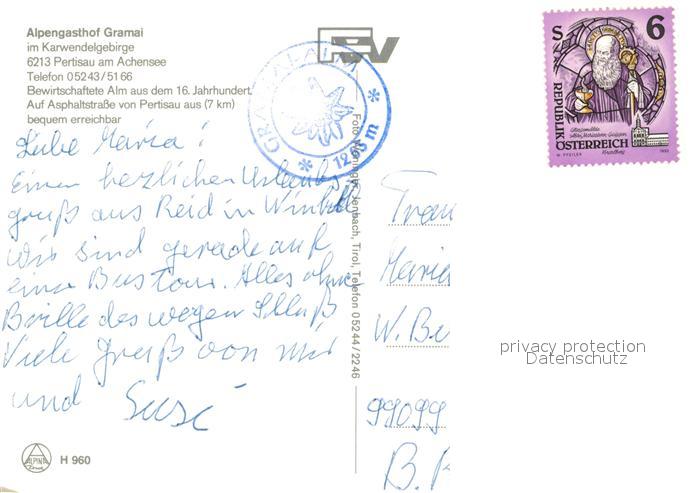 Alpengasthof Gramai
im Karwendelgebirge
6213 Pertisau am Achensee
Telefon 05243/5166
Bewirtschaftete Alm aus dem 16. Jahrhundert.
Auf Asphaltstraße von Pertisau aus (7 km)
bequem erreichbar
GRAMAI ALM
* 1263 m *
Liebe Maria!
Einen herzlichen Urlaubs
gruß aus Reid in Winkel
Wir sind gerade auf
einer Bustour. Alles ohne
Brille deswegen Schluß
Viele Grüß von mir
und Susi
ALPINA
H 960
Jenbach, Tirol, Telefon 05244/2246
S 6
REPUBLIK
ÖSTERREICH
1993
Frau
Maria
W. Be
99099
B.
privacy protection
Datenschutz